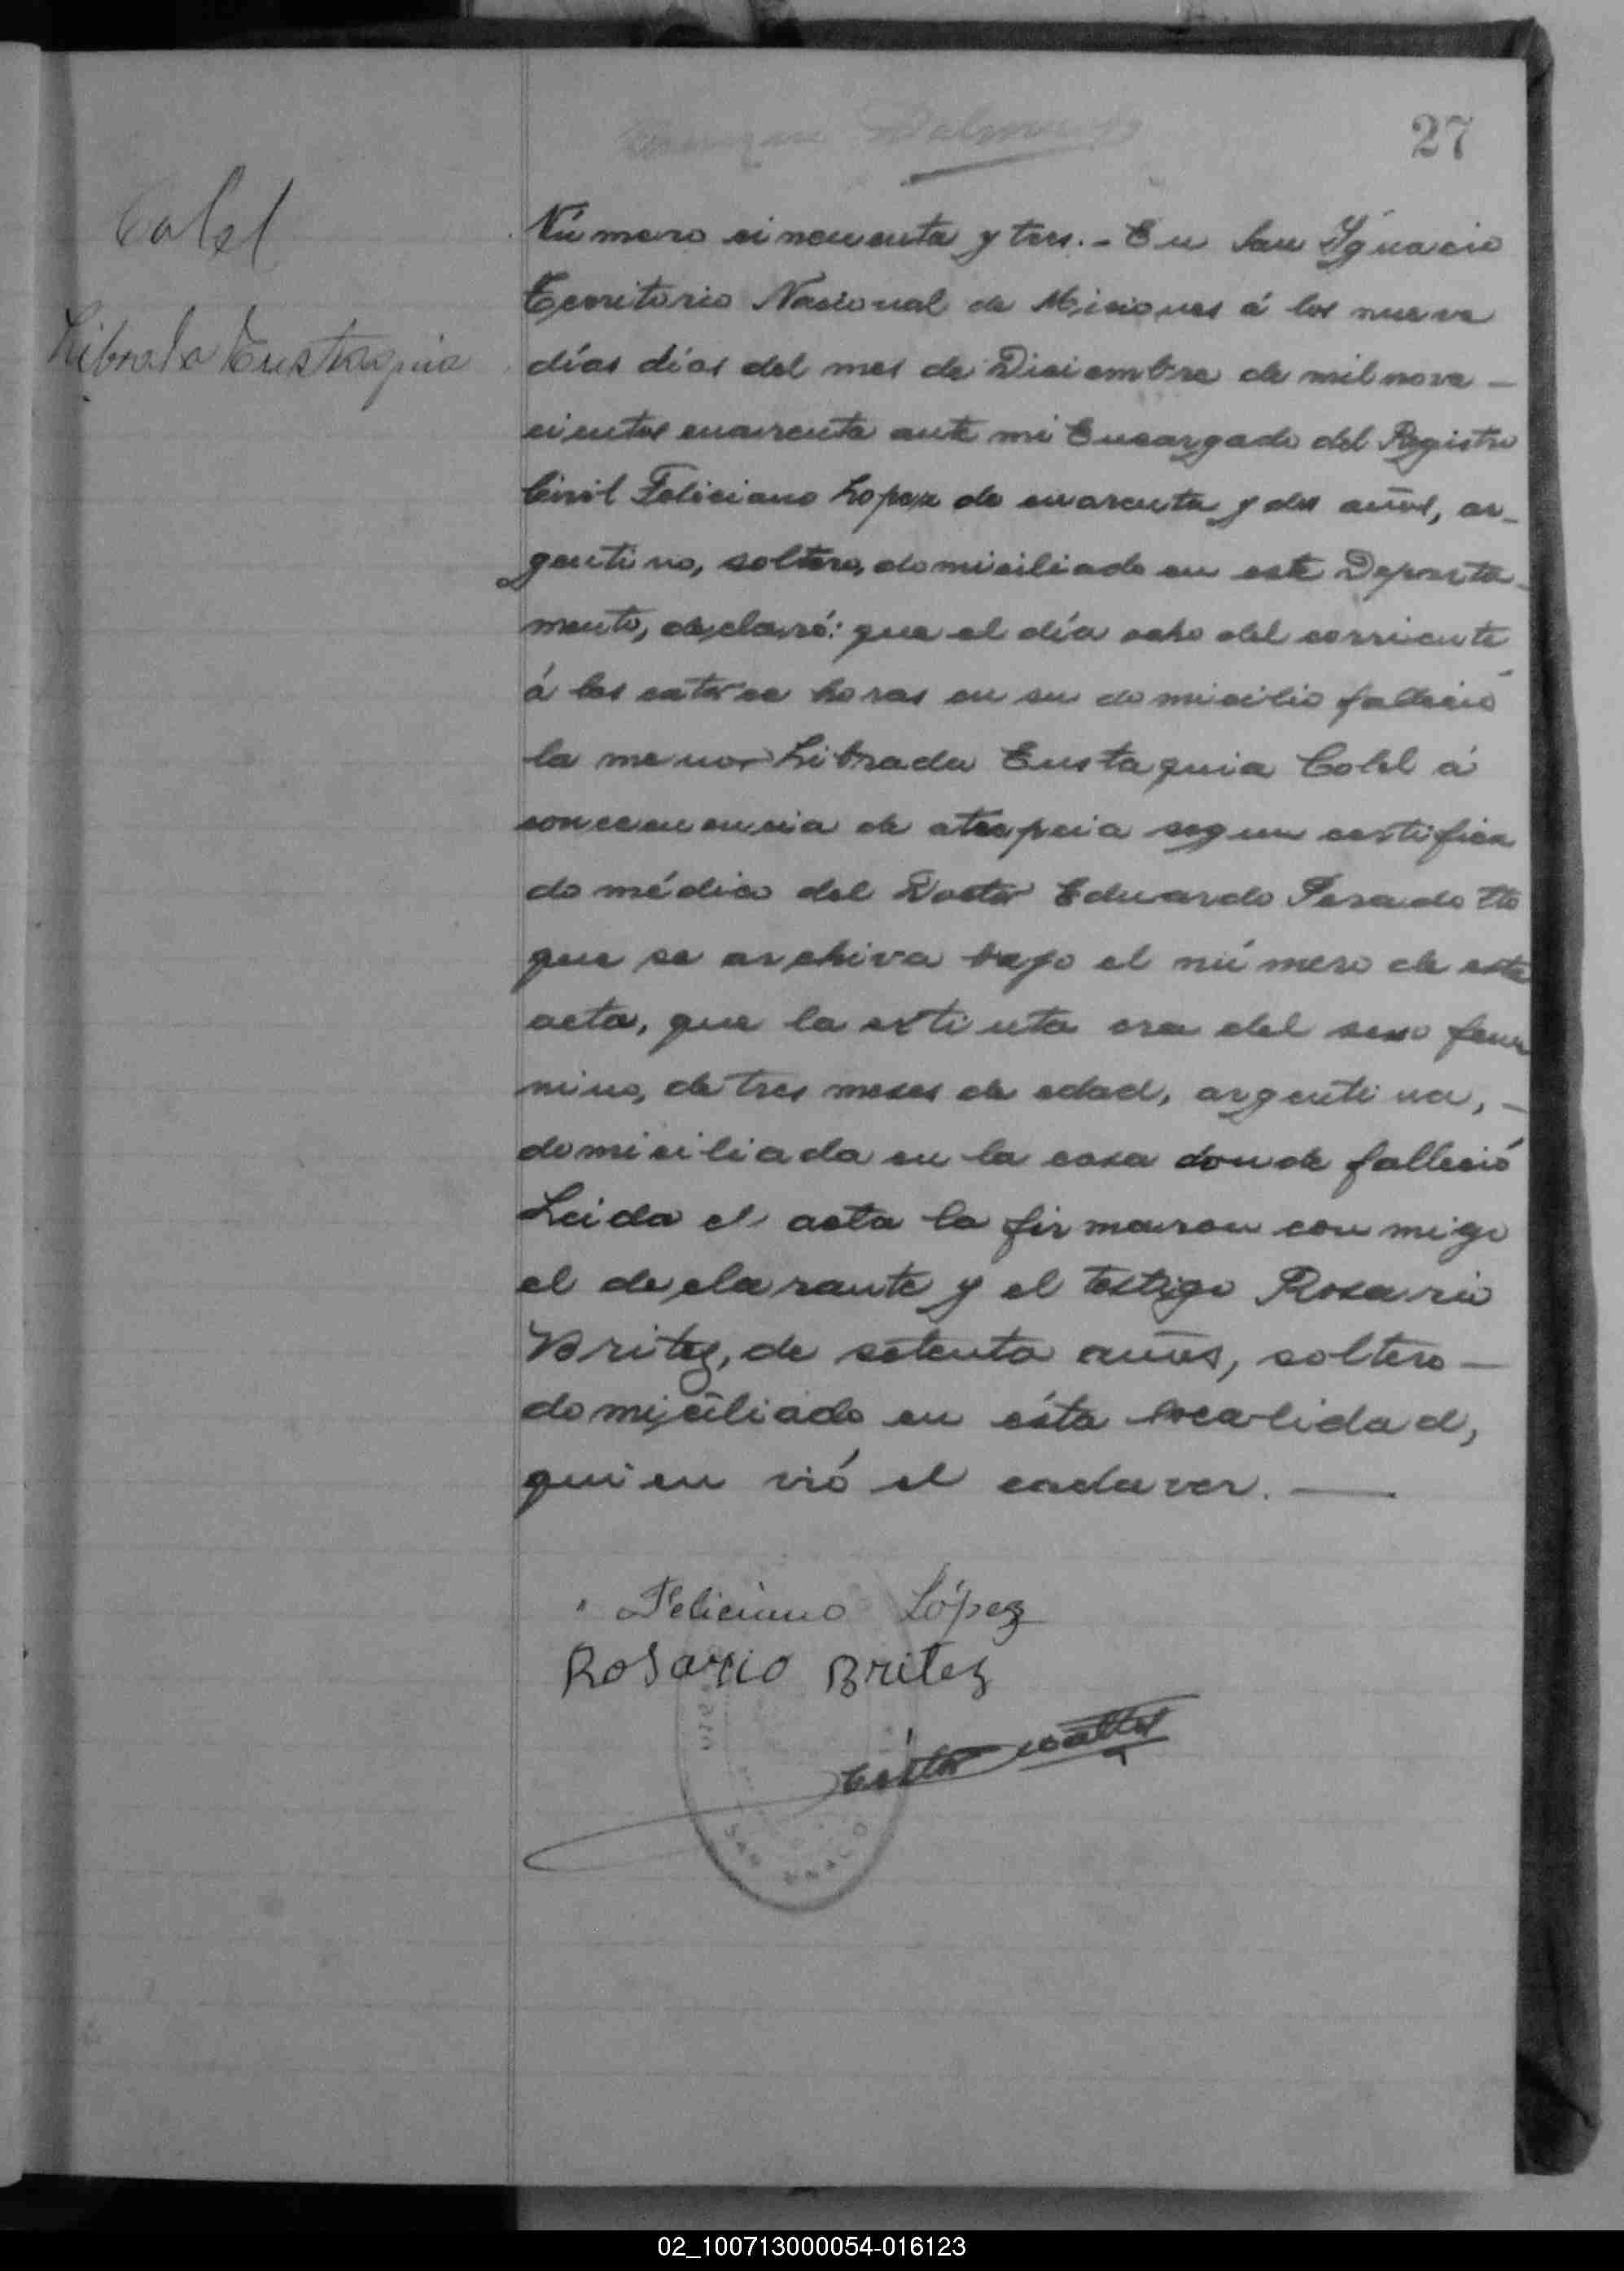 27
Colel
Librada Eustaquia
Número cincuenta y tres.- En San Ygnacio
Territorio Nacional de Misiones á los nueve
días días del mes de Diciembre de mil nove-
cientos cuarenta ante mi Encargado del Registro
Civil Feliciano Lopez de cuarenta y dos años, ar-
gentino, soltero, domiciliado en este Departa-
mento, declaró: que el día ocho del corriente
á las catorce horas en su domicilio falleció
la menor Librada Eustaquia Colel á
concecuencia de atrepcia segun certifica
do médico del Doctor Eduardo Pesado
que se archiva bajo el número de esta
acta, que la extinta era del sexo feme
nino, de tres meses de edad, argentina, -
domiciliada en la casa donde falleció
Leida el acta la firmaron conmigo
el declarante y el testigo Rosario
Britez, de setenta años, soltero -
domiciliado en ésta localidad,
quien vió el cadaver. -
Feliciano López
Rosario Britez
SAN IGNACIO
02_100713000054-016123